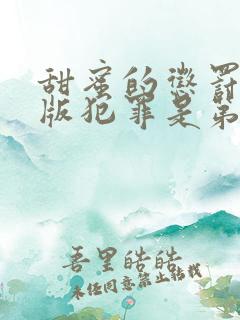 甜蜜的惩罚
版犯罪是弟
吾里皓皓
未经同意禁止转载